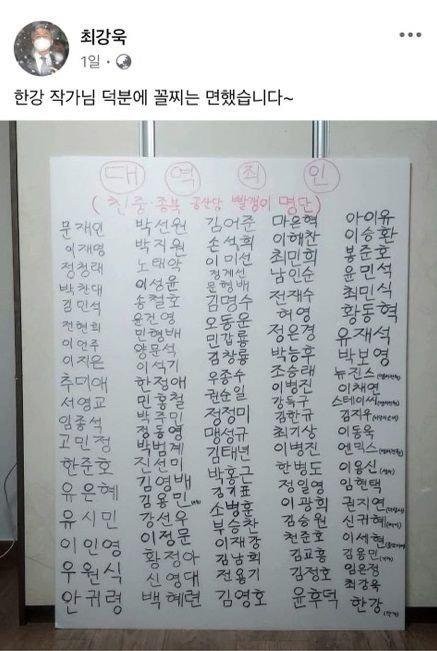 최강욱
1일 ·
한강 작가님 덕분에 꼴찌는 면했습니다~
대 역 죄 인
(친중·종북 공산당 빨갱이 명단)
문재인
이재명
정청래
박찬대
김민석
전현희
이언주
이지은
추미애
서영교
임종석
고민정
한준호
유은혜
유시민
이인영
우원식
안귀령
박선원
박지원
노태악
이성윤
송철호
윤건영
민형배
양문석
이석기
한정애
민홍철
박주민
정동영
박범계
진선미
김영배
김용민
강선우
이정문
황정아
신영대
백혜련
김어준
손석희
이미선
정계선
문형배
김명수
오동운
민갑룡
김창룡
우종수
권순일
정정미
맹성규
김태년
박홍근
김기표
소병훈
부승찬
이재강
김남희
전용기
김영호
마은혁
이해찬
최민희
남인순
전재수
허영
정은경
박능후
조승래
이병진
강득구
김한규
최기상
이병진
한병도
정일영
이광희
김승원
천준호
김교흥
김정호
윤후덕
아이유
이승환
봉준호
윤민석
최민식
황동혁
유재석
박보영
뉴진스(멤버전원)
이채연
스테이씨(멤버전원)
김지우
이동욱
엔믹스(멤버전원)
이용신
임현택
권지연
신귀혜
이세현
김용민
임은정
최강욱
한강(작가)